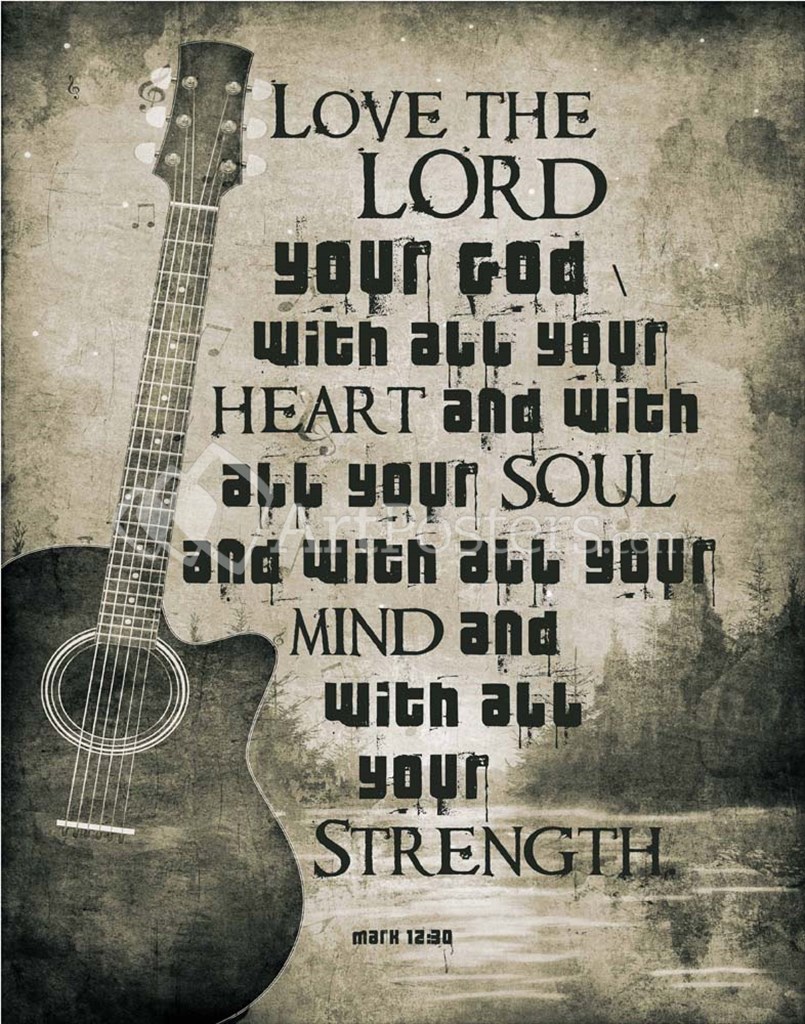 LOVE THE
LORD
your God
with all your
HEART and with
all your SOUL
ArtPosters.com
and with all your
MIND and
with all
your
STRENGTH.
mark 12:30